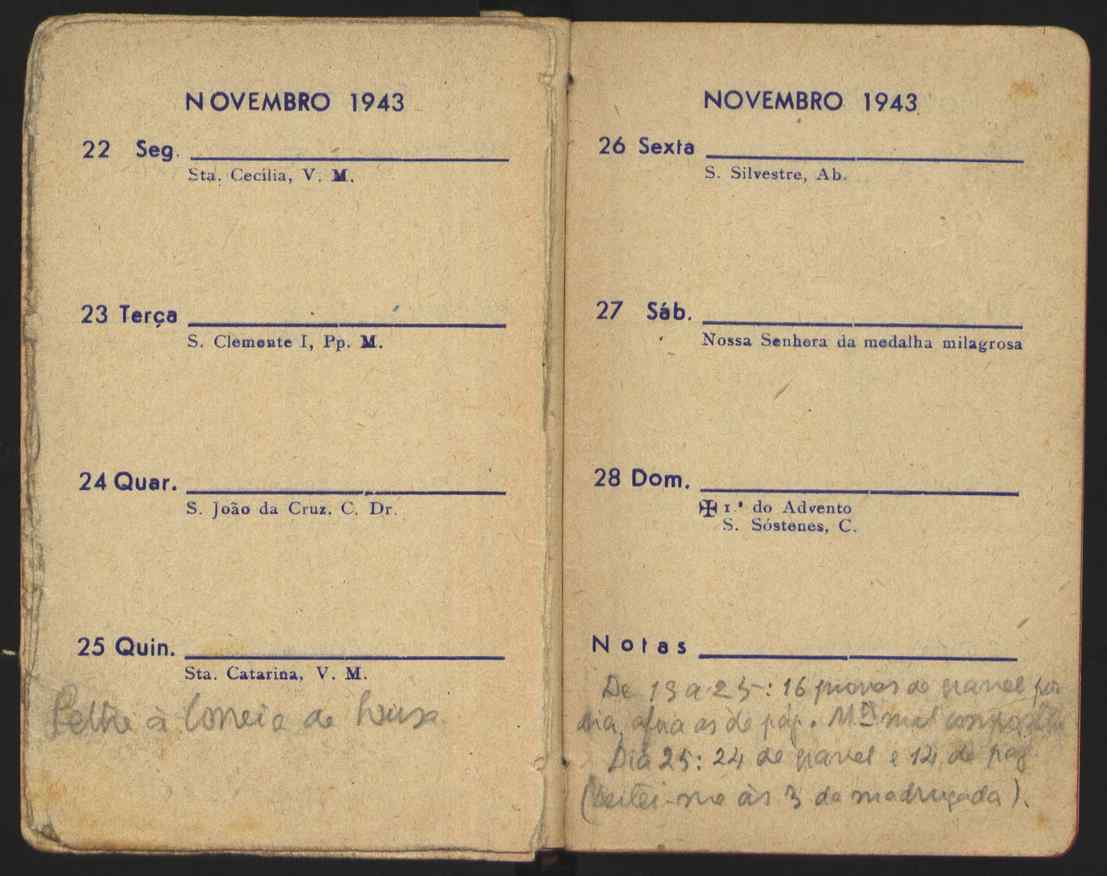 NOVEMBRO 1943
22 Seg.
Sta. Cecília, V. M.
23 Terça
S. Clemente I, Pp. M.
24 Quar.
S. João da Cruz, C. Dr.
25 Quin.
Sta. Catarina, V. M.
à Correia de
NOVEMBRO 1943
26 Sexta
S. Silvestre, Ab.
27 Sáb.
Nossa Senhora da medalha milagrosa
28 Dom.
✠ 1.º do Advento
S. Sóstenes, C.
Notas
De 19 a 25: 16 provas de granel por
dia, afora as de pág. mal
Dia 25: 24 de granel e 12 de pag
(Deitei-me às 3 da madrugada).